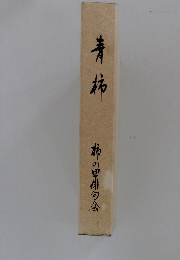 青柿
柿の里俳句会